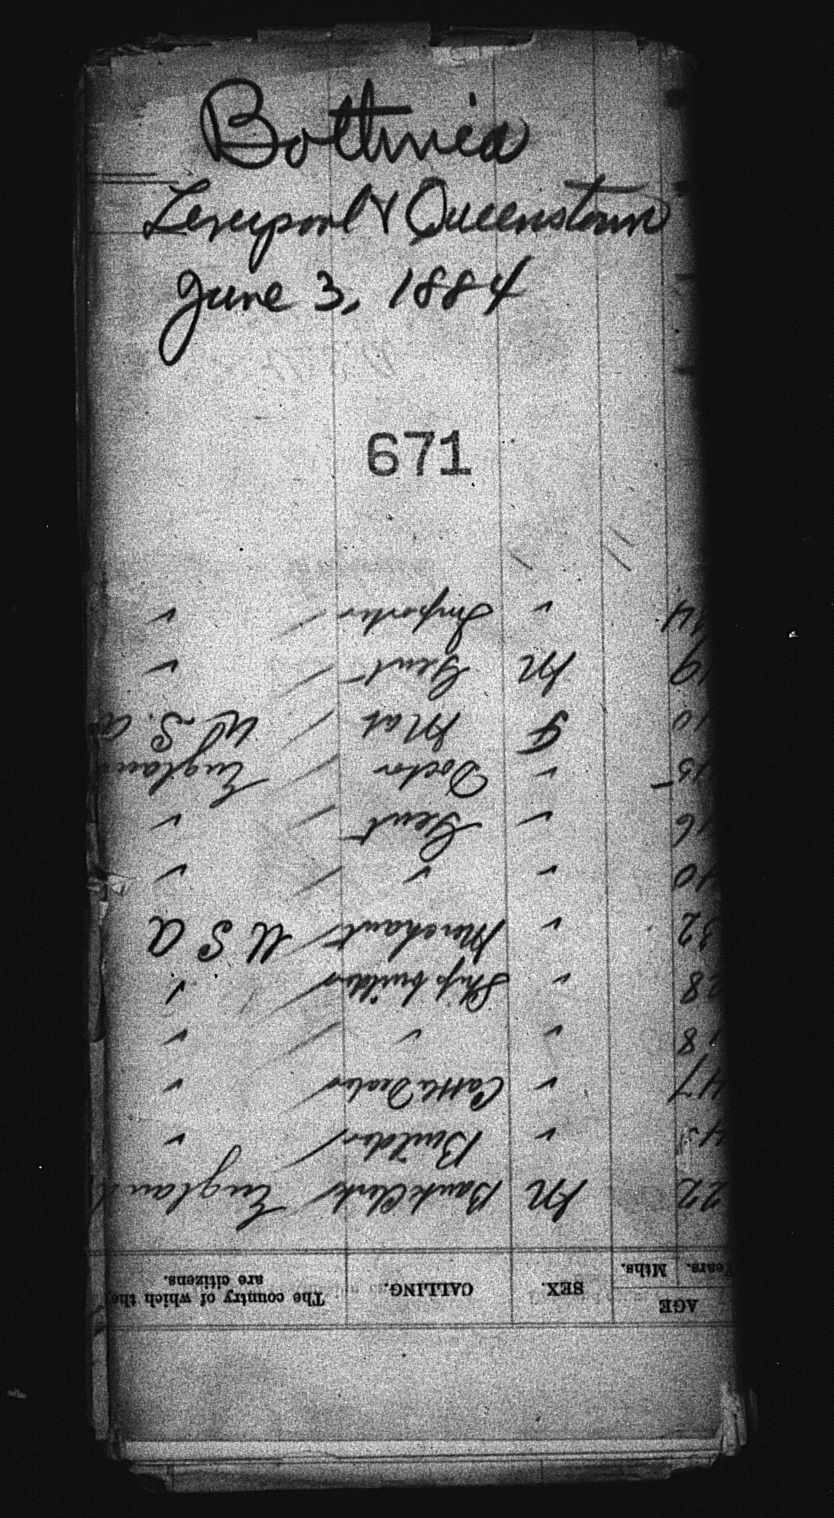 Bothnia
Liverpool & Queenstown
June 3, 1884
671
AGE
Years. Mths.
SEX.
CALLING.
The country of which they are citizens.
22 M Bank Clerk England
Builder ✓ ✓
47 ✓ Cattle Dealer ✓
18 ✓ ✓ ✓
28 ✓ Ship builder ✓
32 ✓ Merchant U S A
40 ✓ ✓ ✓
16 ✓ Gent ✓
15 ✓ Doctor England
10 F Mat U. S. A
19 M Gent ✓
44 ✓ Importer ✓